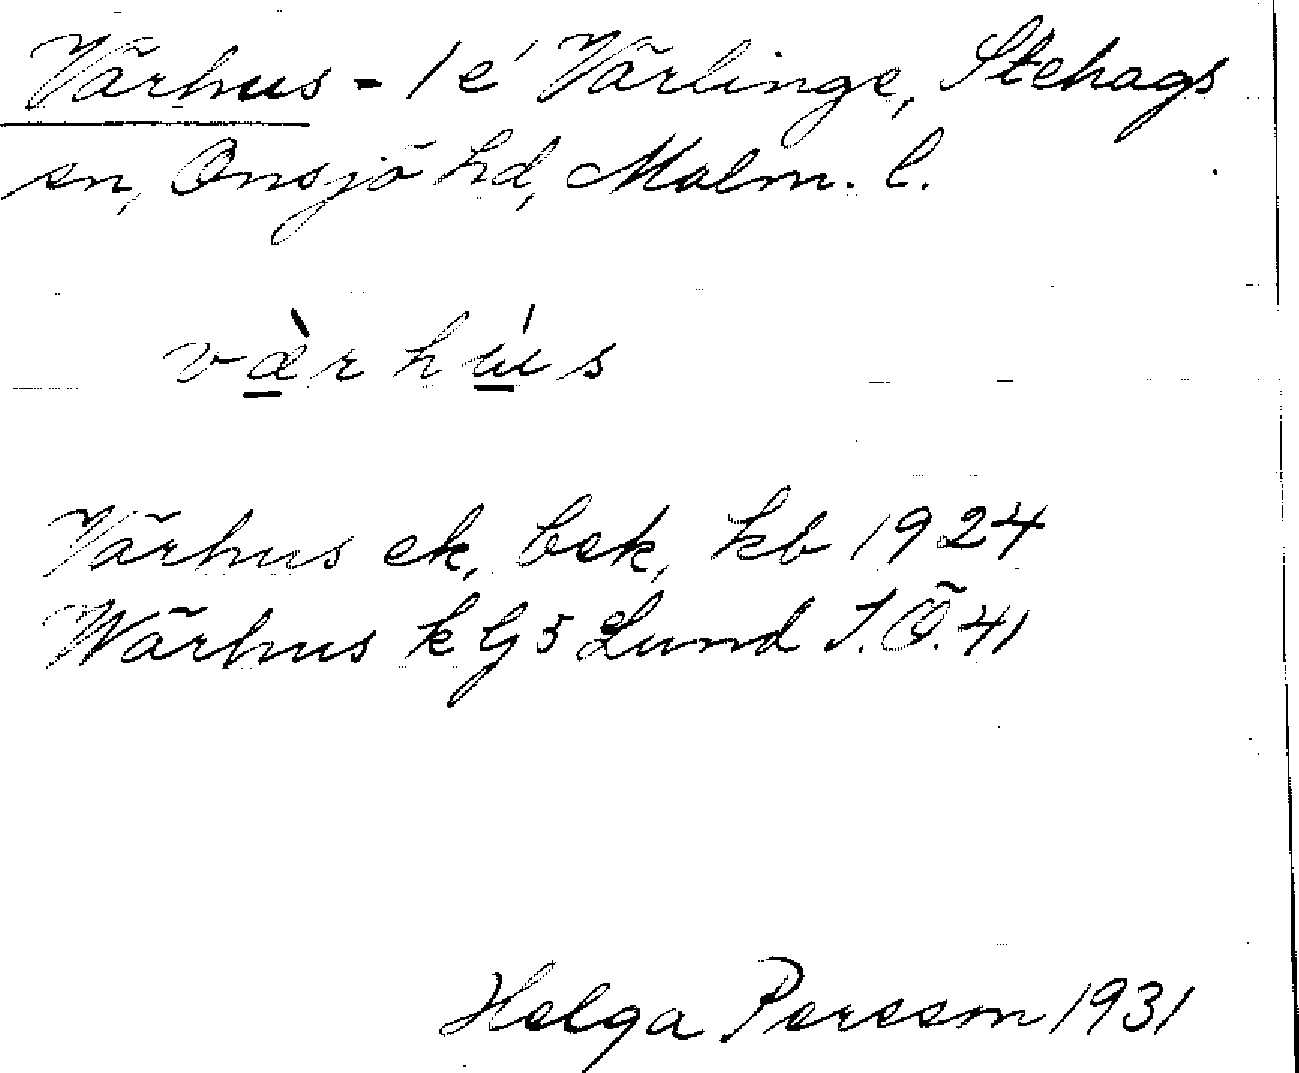 Värhus - 1 é Värlinge, Stehags
sn, Onsjö hd, Malm. l.
væ̀rhús
Värhus ek, bek, kb 1924
Wärhus k G5 Lund I.Ö.41
Helga Persson 1931